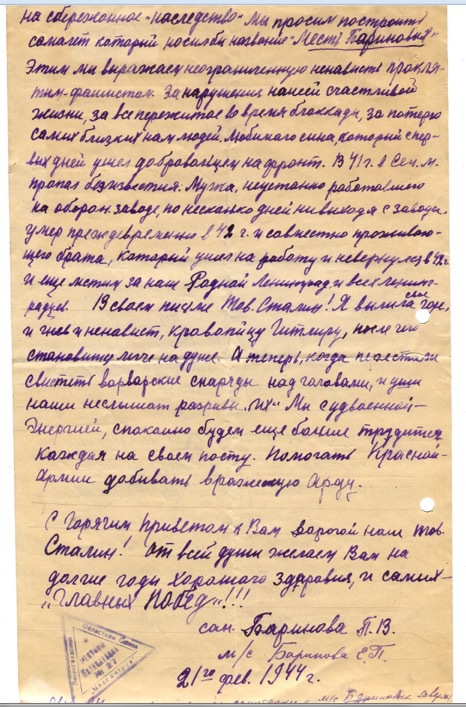 на сбереженное "наследство" Мы просим построить
самолет который носил бы название "Месть Бариновых"
Этим мы выражаем неограниченную ненависть прокля-
тым фашистом. За нарушения нашей счастливой
жизни, за все пережитое во время блоккады, за потерю
самых близких нам людей. Любимого сына, который с пер-
вых дней ушел добровольцем на фронт. В 41 г. в Сен. м.
пропал безизвестия. Мужа, неустанно работавшего
на оборон. заводе, по несколько дней не выходя с завода.
умер преждевременно в 42 г. и совместно проживаю-
щего брата, который ушел на работу и невернулся в 42 г.
и еще мстим за наш Родной Ленинград и всех ленин-
радцев. В своем письме Тов. Сталин! Я вылила свое,
и гнев и ненавист, кравапийцу Гитлиру, после чего
становится легче на душе. А теперь, когда перестали
свистеть варварские снаряды над головами, и уши
наши неслышат разрывы их. Мы с удвоенной-
Энергией, спокойно будем еще больше трудится
каждая на своем посту. Помогать Красной-
Армии добивать вражескую Арду.
С Горячим Приветом к Вам дорогой наш Тов.
Сталин! От всей души желаем Вам на
долгие годы хорошего здаровия, и самых-
"Главных ПОБЕД"!!!
сан. Баринова П.В.
м/с Баринова Е.П.
21го фев. 1944 г.
№ 27